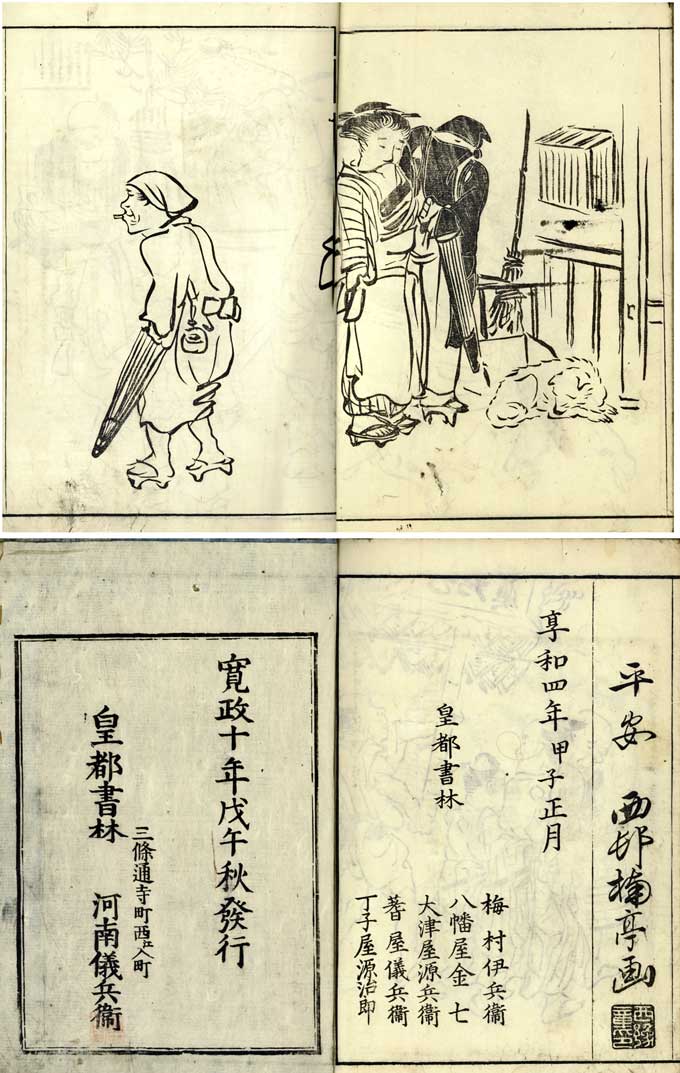 平安 西邨楠亭画
享和四年甲子正月
皇都書林
梅村伊兵衞
八幡屋金七
大津屋源兵衞
蓍屋儀兵衞
丁子屋源治郎
寛政十年戊午秋發行
三條通寺町西江入町
皇都書林 河南儀兵衞